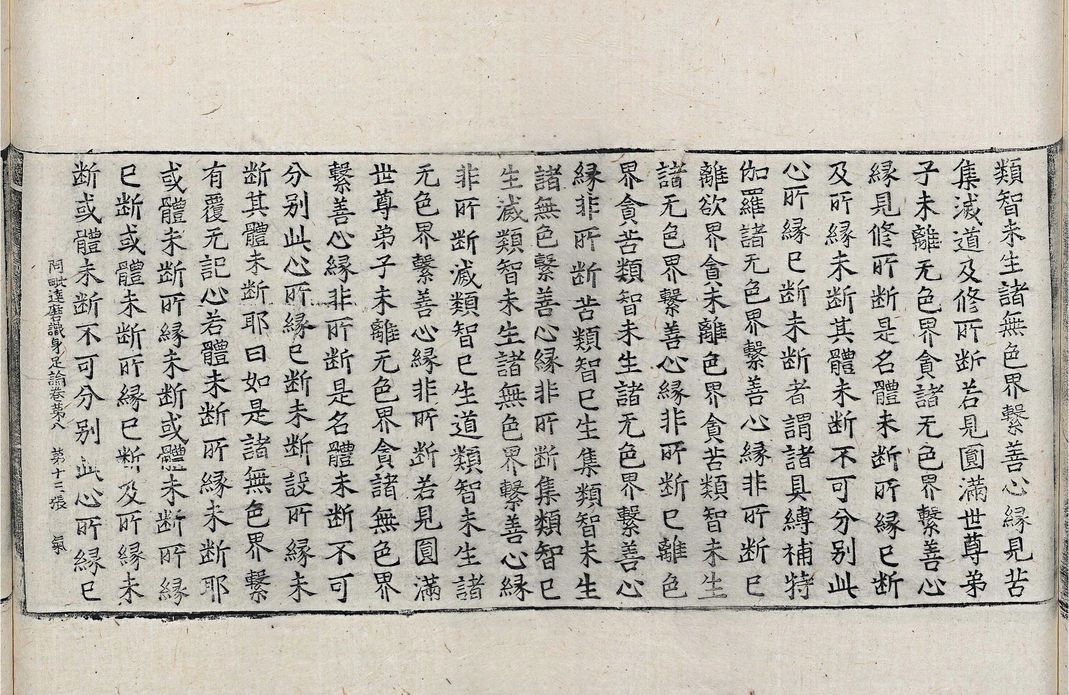 類智未生諸無色界繫善心緣見苦
集滅道及修所斷若見圓滿世尊弟
子未離无色界貪諸无色界繫善心
緣見修所斷是名體未斷所緣已斷
及所緣未斷其體未斷不可分別此
心所緣已斷未斷者謂諸具縛補特
伽羅諸无色界繫善心緣非所斷已
離欲界貪未離色界貪苦類智未生
諸无色界繫善心緣非所斷已離色
界貪苦類智未生諸无色界繫善心
緣非所斷苦類智已生集類智未生
諸無色繫善心緣非所斷集類智已
生滅類智未生諸無色界繫善心緣
非所斷滅類智已生道類智未生諸
无色界繫善心緣非所斷若見圓滿
世尊弟子未離无色界貪諸無色界
繫善心緣非所斷是名體未斷不可
分別此心所緣已斷未斷設所緣未
斷其體未斷耶曰如是諸無色界繫
有覆无記心若體未斷所緣未斷耶
或體未斷所緣未斷或體未斷所緣
已斷或體未斷所緣已斷及所緣未
斷或體未斷不可分別此心所緣已
阿毗達磨識身足論卷第八 第十三張 氣